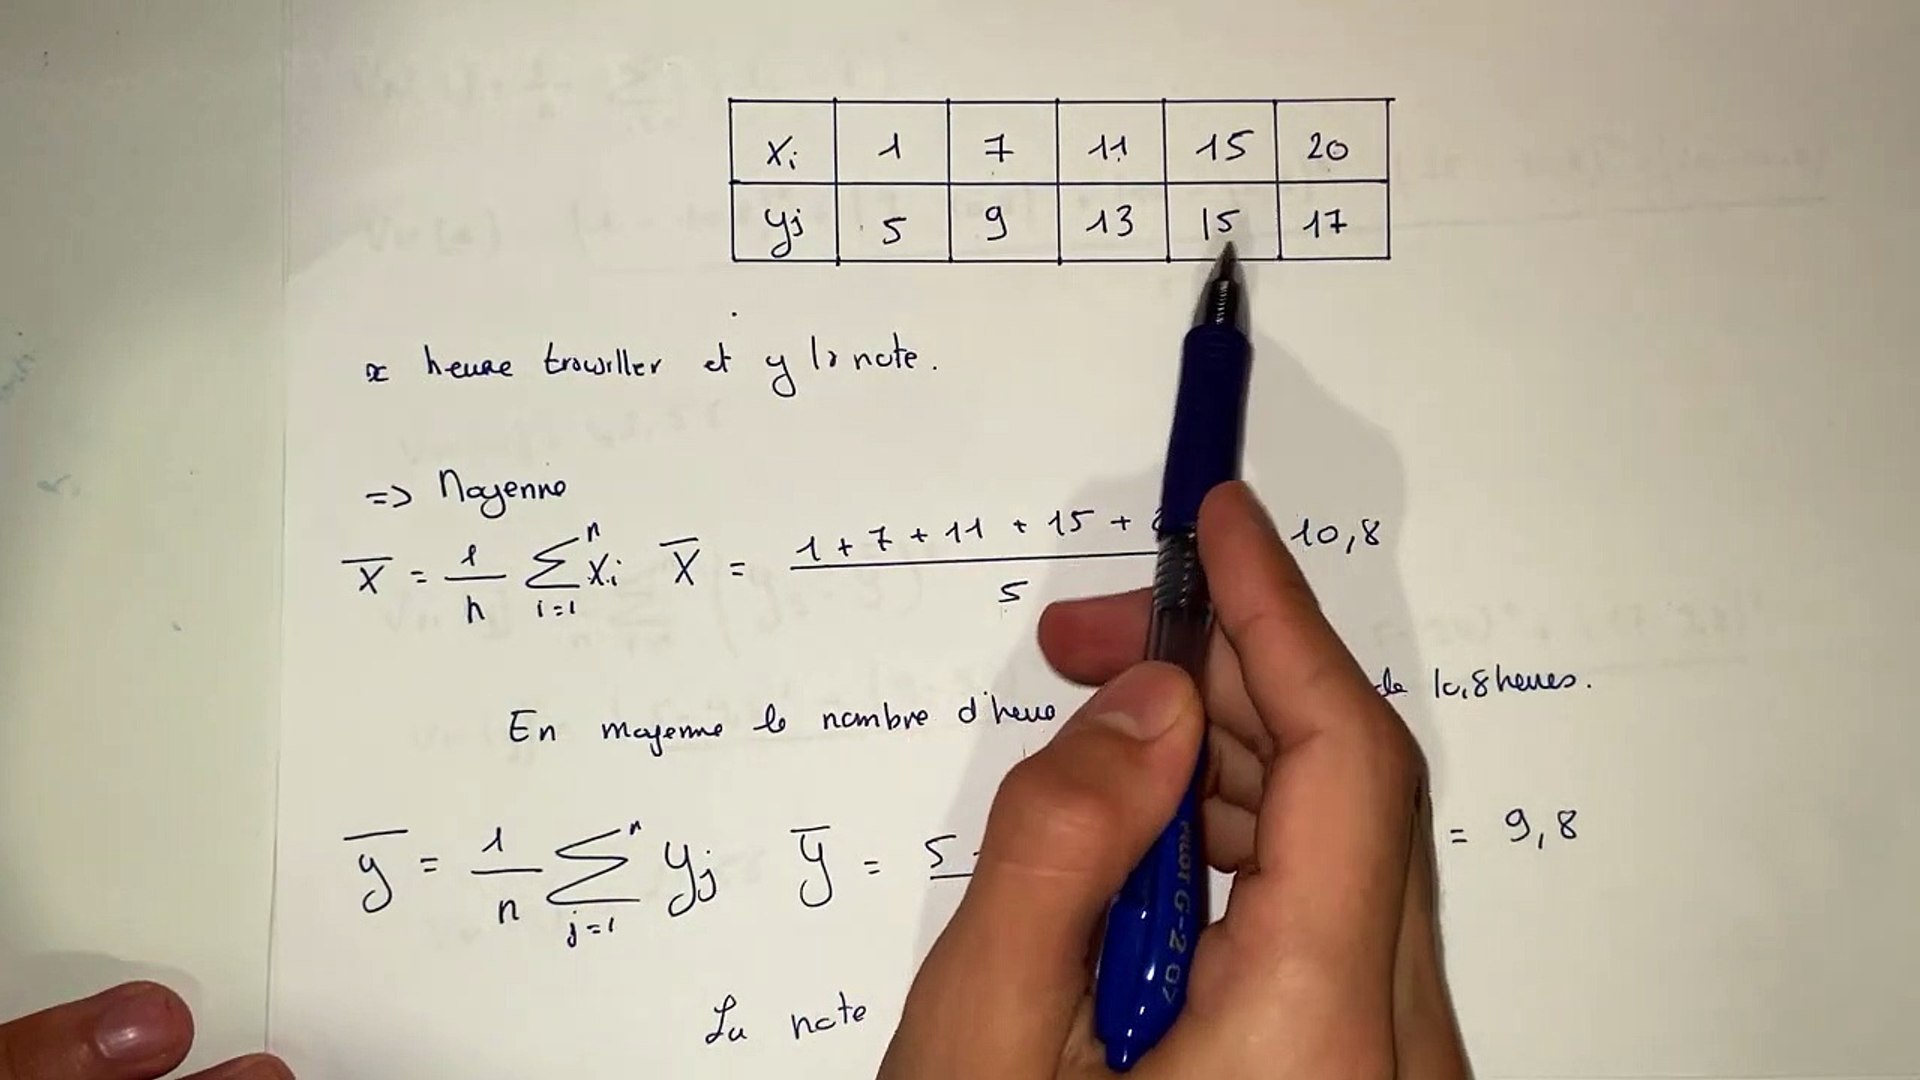 xi 1 7 11 15 20
yj 5 9 13 15 17
x heure trawiller et y la note.
=> Moyenne
x̄ = 1/n Σ(i=1 → n) xi x̄ = (1 + 7 + 11 + 15 +)/5 10,8
En moyenne le nombre d'heue de 10,8 heues.
ȳ = 1/n Σ(j=1 → n) yj ȳ = 5 = 9,8
La note
PILOT G-2 07